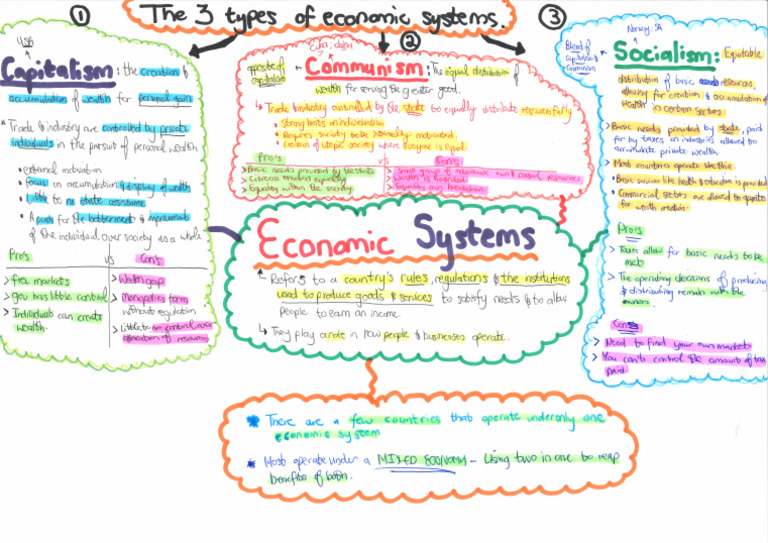 The 3 types of economic systems.
①
USA
Capitalism: the creation &
accumulation of wealth for personal gain
* Trade & industry are controlled by private
individuals in the pursuit of personal wealth
• external motivation
• focus on accumulation & display of wealth
• little to no state assistance
• A push for the betterment & improvement
of the individual over society as a whole
Pro's vs Con's
> free markets
> gov has little control
> Individuals can create
wealth.
> Wider gap
> Monopolies form
without regulation
> Little to no control over
allocation of resources
②
Cuba, china
opposite of
capitalism
Communism: The equal distribution of
wealth for serving the greater good.
↳ Trade & industry controlled by the state to equally distribute resources fully
• strong limits on individualism
• Requires society to be internally motivated.
• creation of utopic society where everyone is equal.
Pro's vs Con's
> Basic needs provided by the state
> Citizens treated equally
> Equality within the society.
> Small group of individuals control resources
> Wealth is hoarded
> Equalities can breakdown
③
Norway, SA
Blend of
capitalism &
communism
Socialism: Equitable
distribution of basic resources,
allowing for creation & accumulation of
wealth in certain sectors
> Basic needs provided by state, paid
for by taxes as industries allowed to
accumulate private wealth.
> Most countries operate like this
• Basic services like health & education is provided
• Commercial sectors are allowed to operate
for wealth creation
Pro's
> Taxes allow for basic needs to be
met
> The operating decisions of producing
& distributing remain with the
owners.
Con's
> Need to find your own markets
> You can't control the amount of tax
paid
Economic Systems
↳ Refers to a country's rules, regulations & the institutions
used to produce goods & services to satisfy needs & to allow
people to earn an income.
↳ They play a role in how people & businesses operate.
* There are a few countries that operate under only one
economic system
* Most operate under a MIXED ECONOMY - Using two in one to reap
benefits of both.